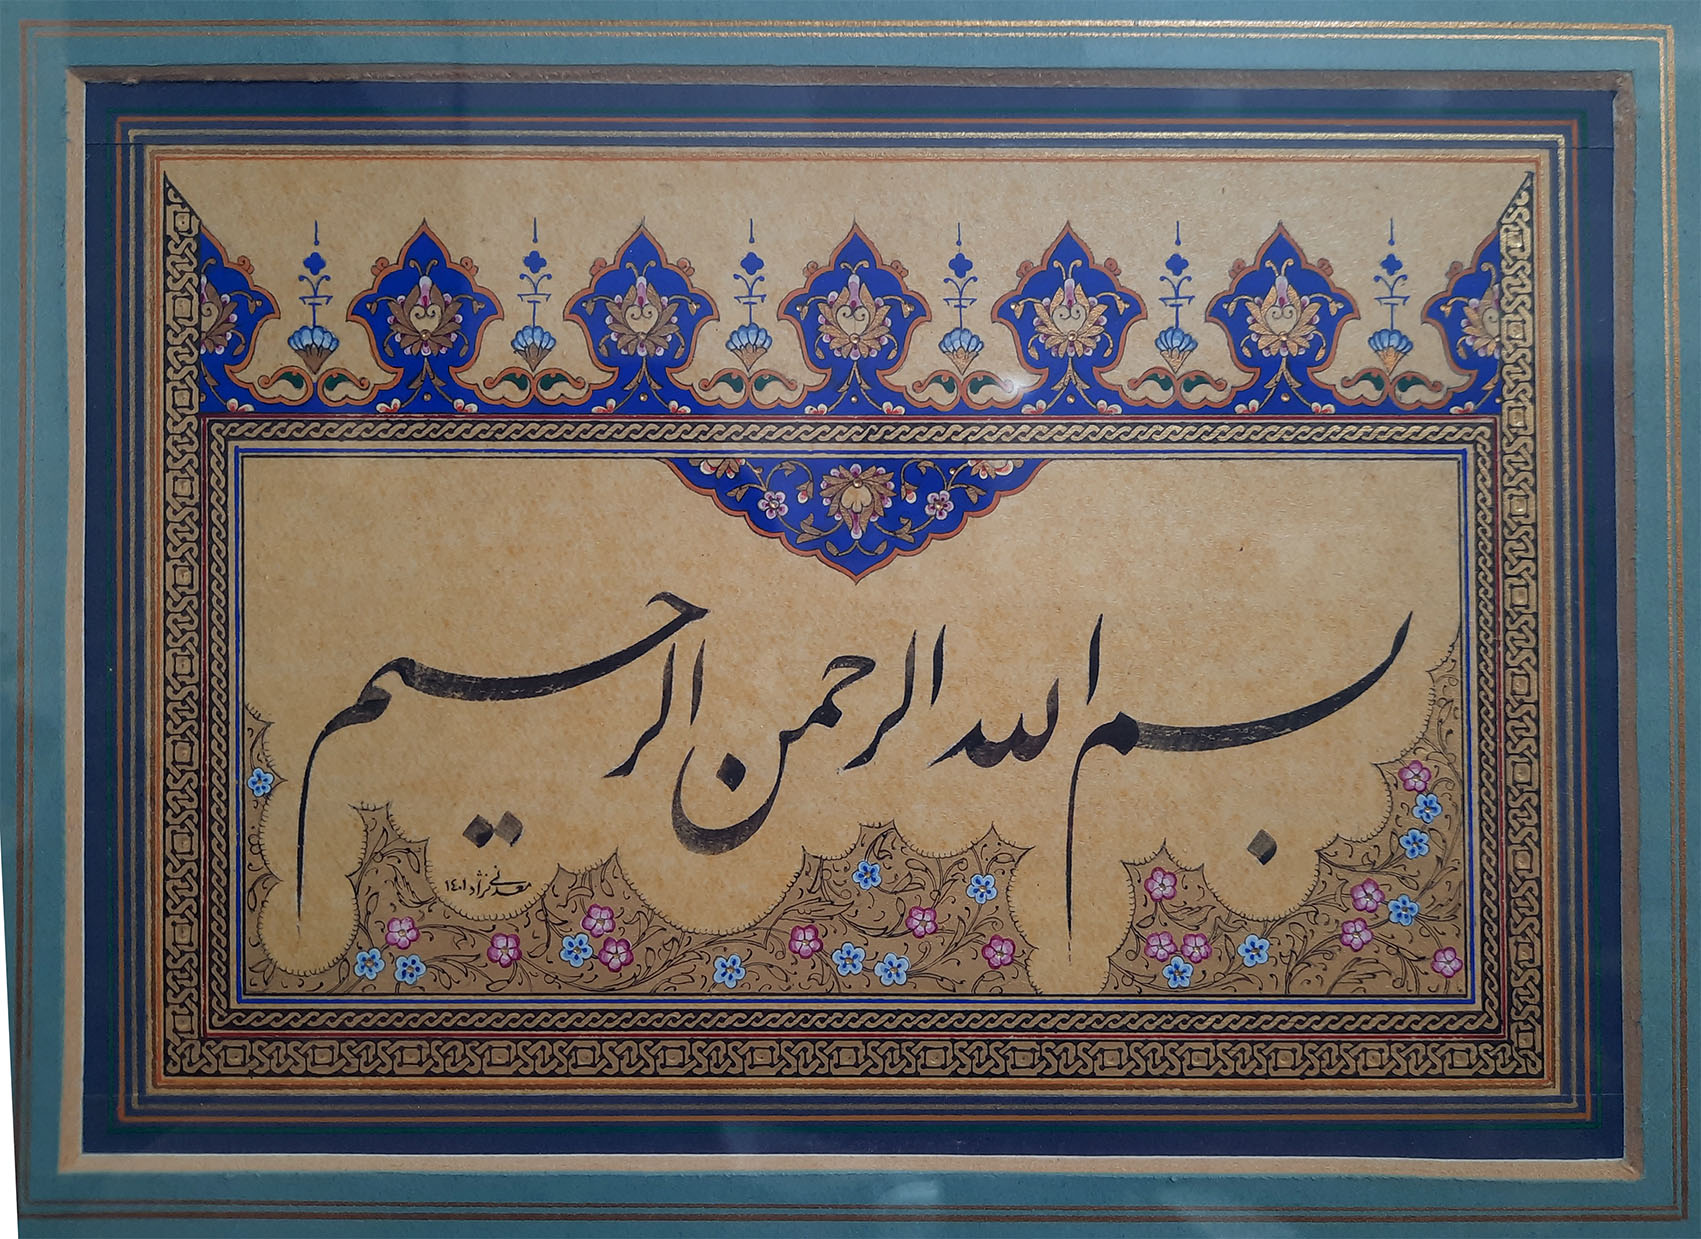 بسم الله الرحمن الرحیم
معدنی‌نژاد ۱۴۰۱